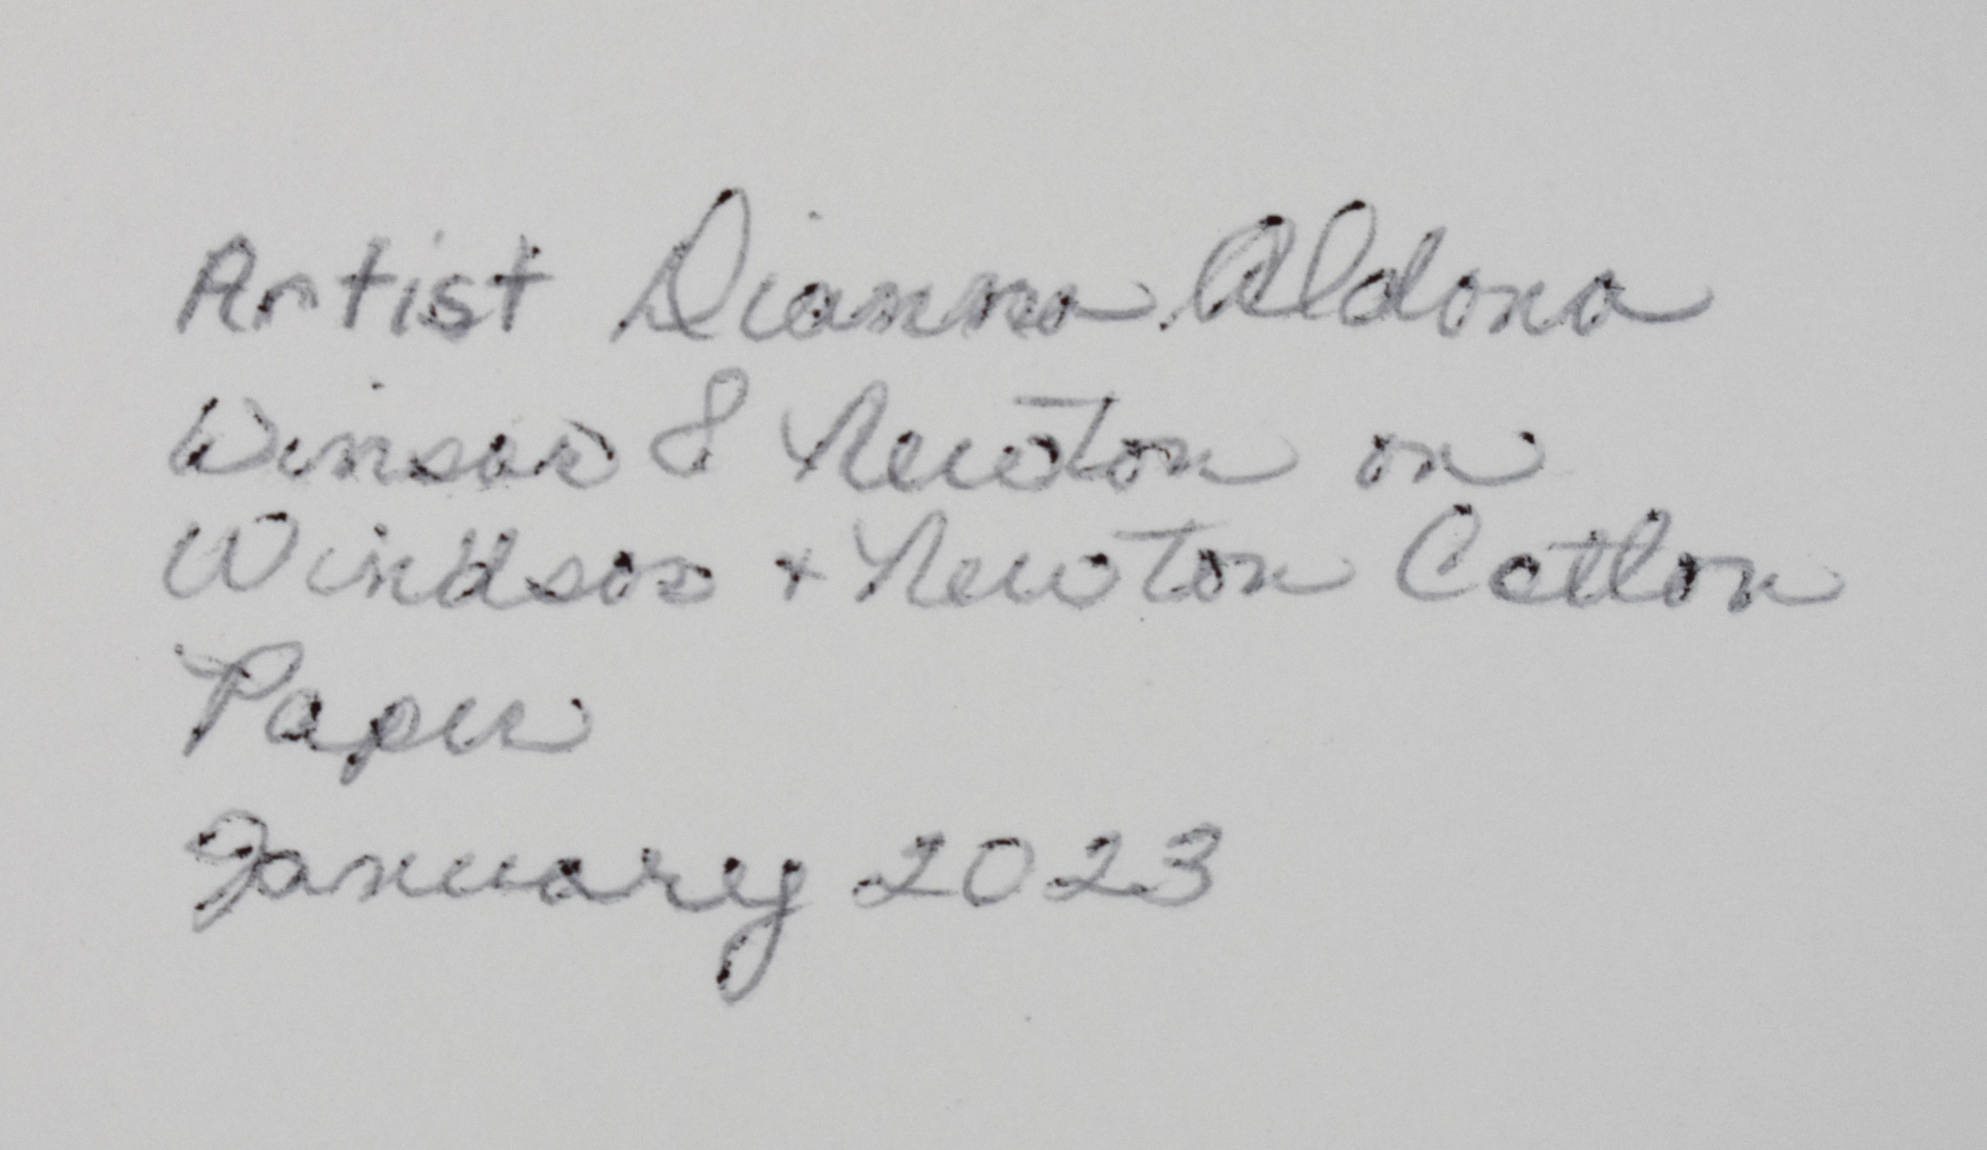 Artist Dianna Aldona
Winsor & Newton on
Windsor + Newton Cotton
Paper
January 2023